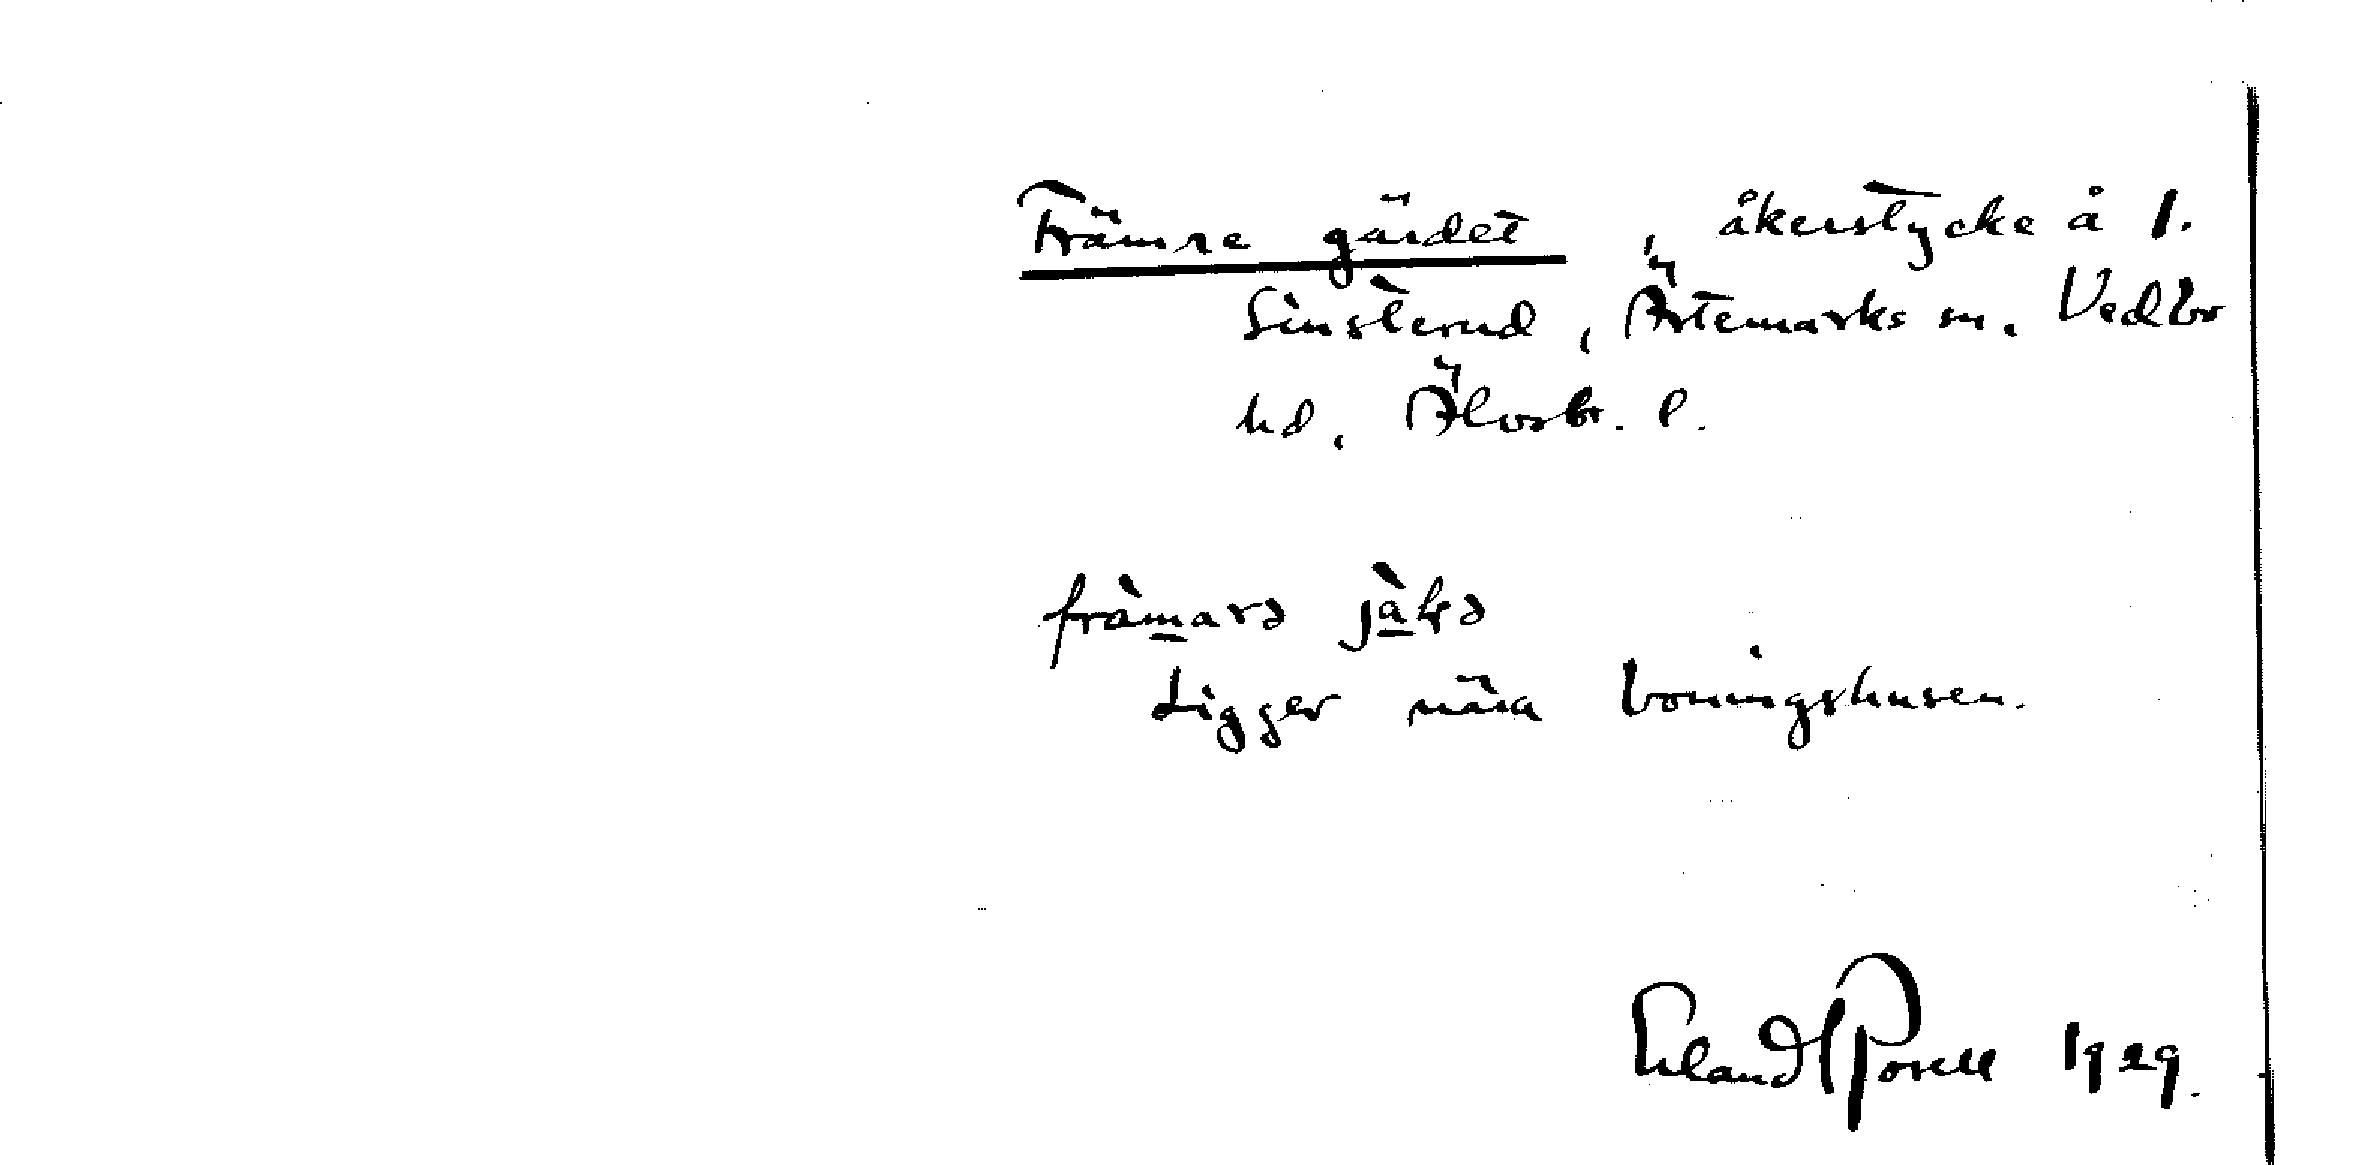 Främre gärdet, åkerstycke å 1.
Sinsterud, Ärtemarks sn. Vedbr
hd, Älvsbr. l.
främarə
Ligger nära boningshusen.
Erland Rosell 1929.